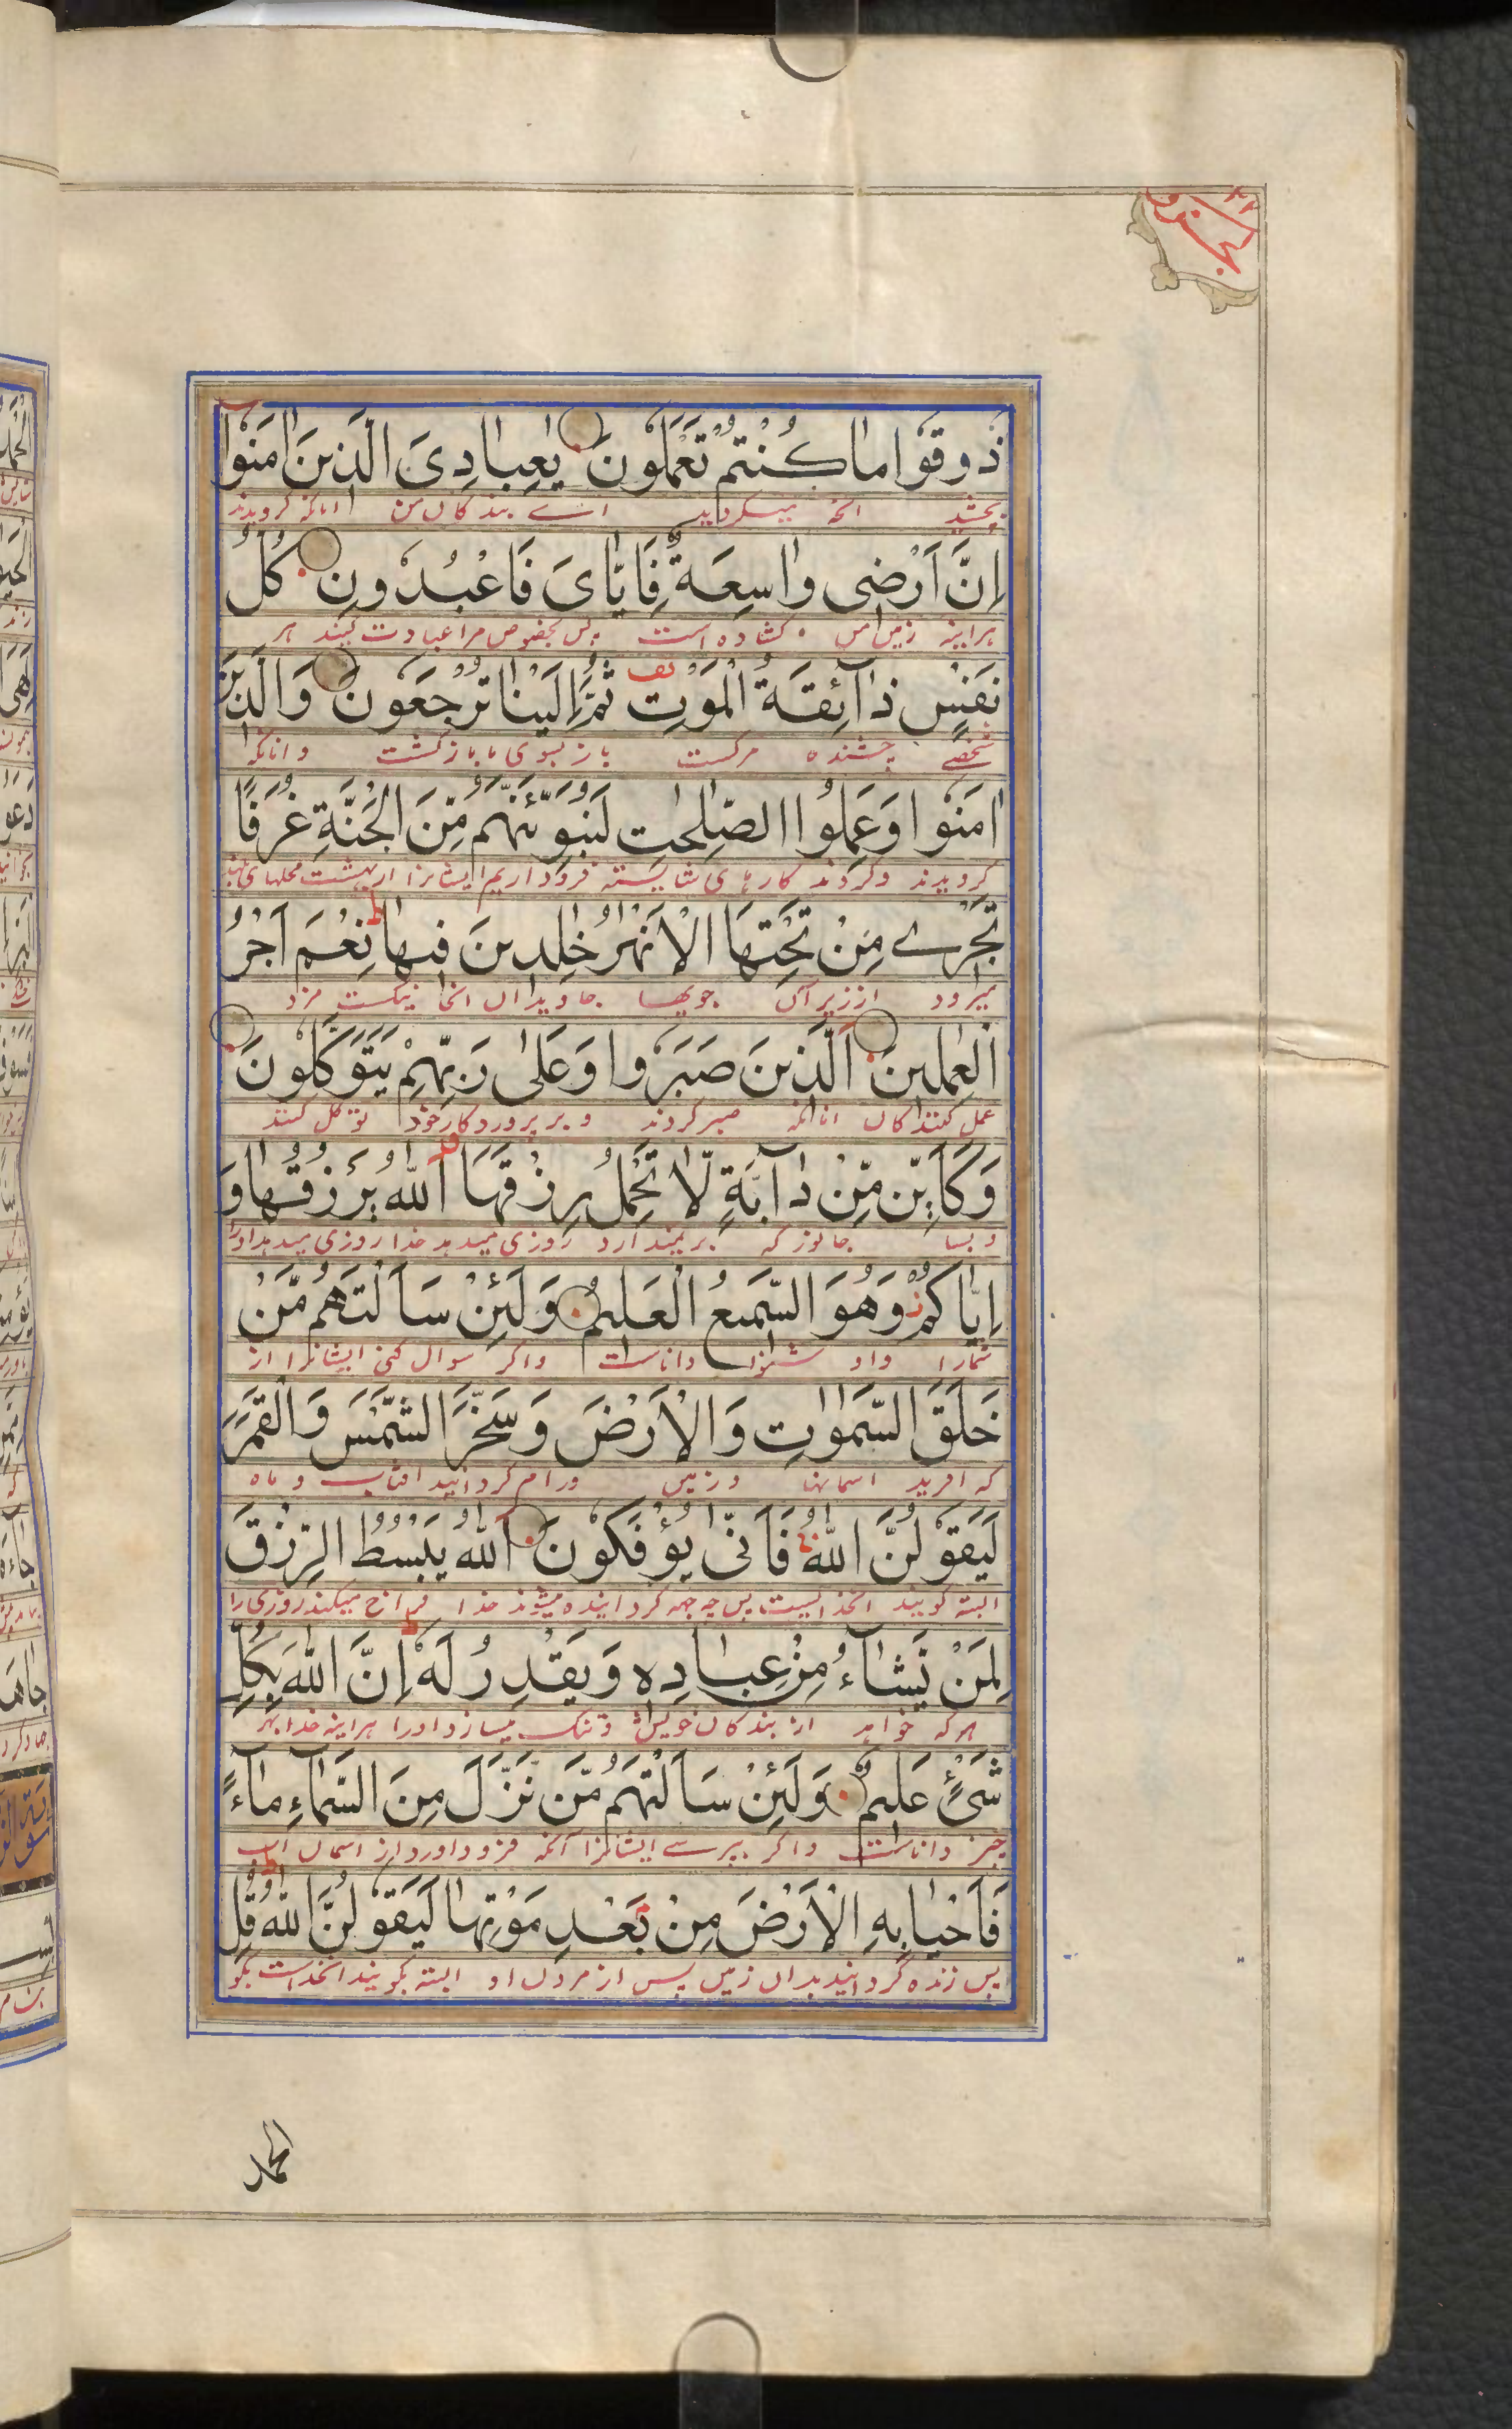 ذُوقُوا مَا كُنْتُمْ تَعْمَلُونَ يٰعِبَادِيَ الَّذِينَ اٰمَنُوا
بچشید انچه میکردید اے بندکان من انانکه کرویدند
اِنَّ اَرْضِی وَاسِعَةٌ فَاِيَّايَ فَاعْبُدُونِ كُلُّ
هراینه زمین من کشاده است پس بخصوص مرا عبادت کنید هر
نَفْسٍ ذَآئِقَةُ الْمَوْتِ ثُمَّ اِلَيْنَا تُرْجَعُونَ وَالَّذِينَ
شخصے چشنده مرکست باز بسوی ما بازکشت وانانکه
اٰمَنُوا وَعَمِلُوا الصّٰلِحٰتِ لَنُبَوِّئَنَّهُمْ مِّنَ الْجَنَّةِ غُرَفًا
کرویدند وکردند کارهای شایسته فرود اریم ایشانرا از بهشت محلهای
تَجْرِے مِنْ تَحْتِهَا الْاَنْهٰرُ خٰلِدِينَ فِيهَا نِعْمَ اَجْرُ
میرود از زیر آن جویها جاویدان انجا نیکست مزد
الْعٰمِلِينَ الَّذِينَ صَبَرُوا وَعَلٰى رَبِّهِمْ يَتَوَكَّلُونَ
عمل کنندکان انانکه صبر کردند و بر پروردکار خود توکل کنند
وَكَاَيِّنْ مِّنْ دَآبَّةٍ لَّا تَحْمِلُ رِزْقَهَا اَللّٰهُ يَرْزُقُهَا وَ
و بسا جانور که بر نمیدارد روزی میدهد خدا روزی میدهد اورا
اِيَّاكُمْ وَهُوَ السَّمِيعُ الْعَلِيمُ وَلَئِنْ سَاَلْتَهُمْ مَّنْ
شمارا واو شنوا داناست واکر سوال کنی ایشانرا از
خَلَقَ السَّمٰوٰتِ وَالْاَرْضَ وَسَخَّرَ الشَّمْسَ وَالْقَمَرَ
که افرید اسمانها وزمین ورام کردانید افتاب و ماه
لَيَقُولُنَّ اللّٰهُ فَاَنّٰى يُؤْفَكُونَ اَللّٰهُ يَبْسُطُ الرِّزْقَ
البته کویند انخداییست پس چه جهه کردانیده میشوند خدا فراخ میکند روزی را
لِمَنْ يَّشَآءُ مِنْ عِبَادِهٖ وَيَقْدِرُ لَهٗ اِنَّ اللّٰهَ بِكُلِّ
هرکه خواهد از بندکان خویش وتنک میسازد اورا هراینه خدا بهر
شَیْءٍ عَلِيمٌ وَلَئِنْ سَاَلْتَهُمْ مَّنْ نَّزَّلَ مِنَ السَّمَآءِ مَآءً
چیز داناست واکر بپرسے ایشانرا آنکه فرود اورد از اسمان اب
فَاَحْيَا بِهِ الْاَرْضَ مِنْ بَعْدِ مَوْتِهَا لَيَقُولُنَّ اللّٰهُ قُلِ
پس زنده کردانید بدان زمین پس از مردن او البته بکویند انخداست بکو
الحمد